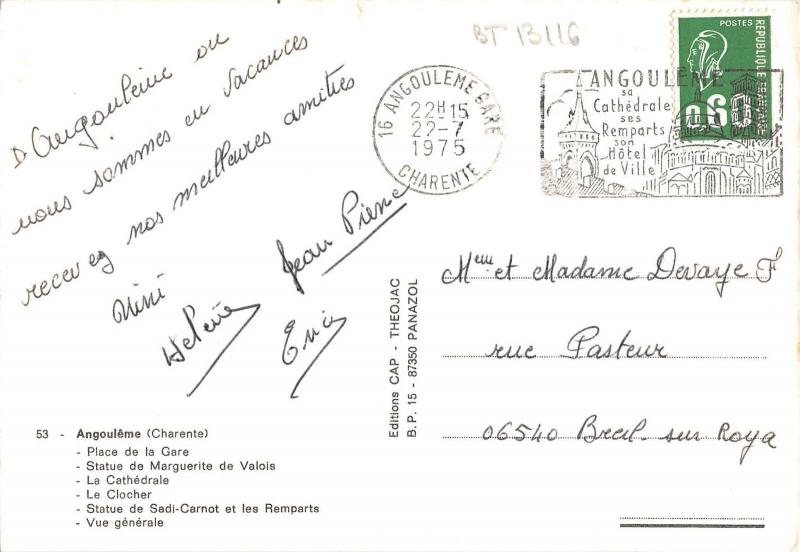 BT 13116
D'Angoulême ou
nous sommes en vacances
recevez nos meilleures amitiés
Mimi
Jean Pierre
Helene
Eric
16 ANGOULEME GARE
22H15
22-7
1975
CHARENTE
ANGOULÊME
sa
Cathédrale
ses
Remparts
son
Hôtel
de Ville
POSTES
REPUBLIQUE FRANÇAISE
0,60
Editions CAP - THEOJAC
B. P. 15 - 87350 PANAZOL
et Madame Devaye F
rue Pasteur
06540 Breil sur Roya
53 - Angoulême (Charente)
- Place de la Gare
- Statue de Marguerite de Valois
- La Cathédrale
- Le Clocher
- Statue de Sadi-Carnot et les Remparts
- Vue générale